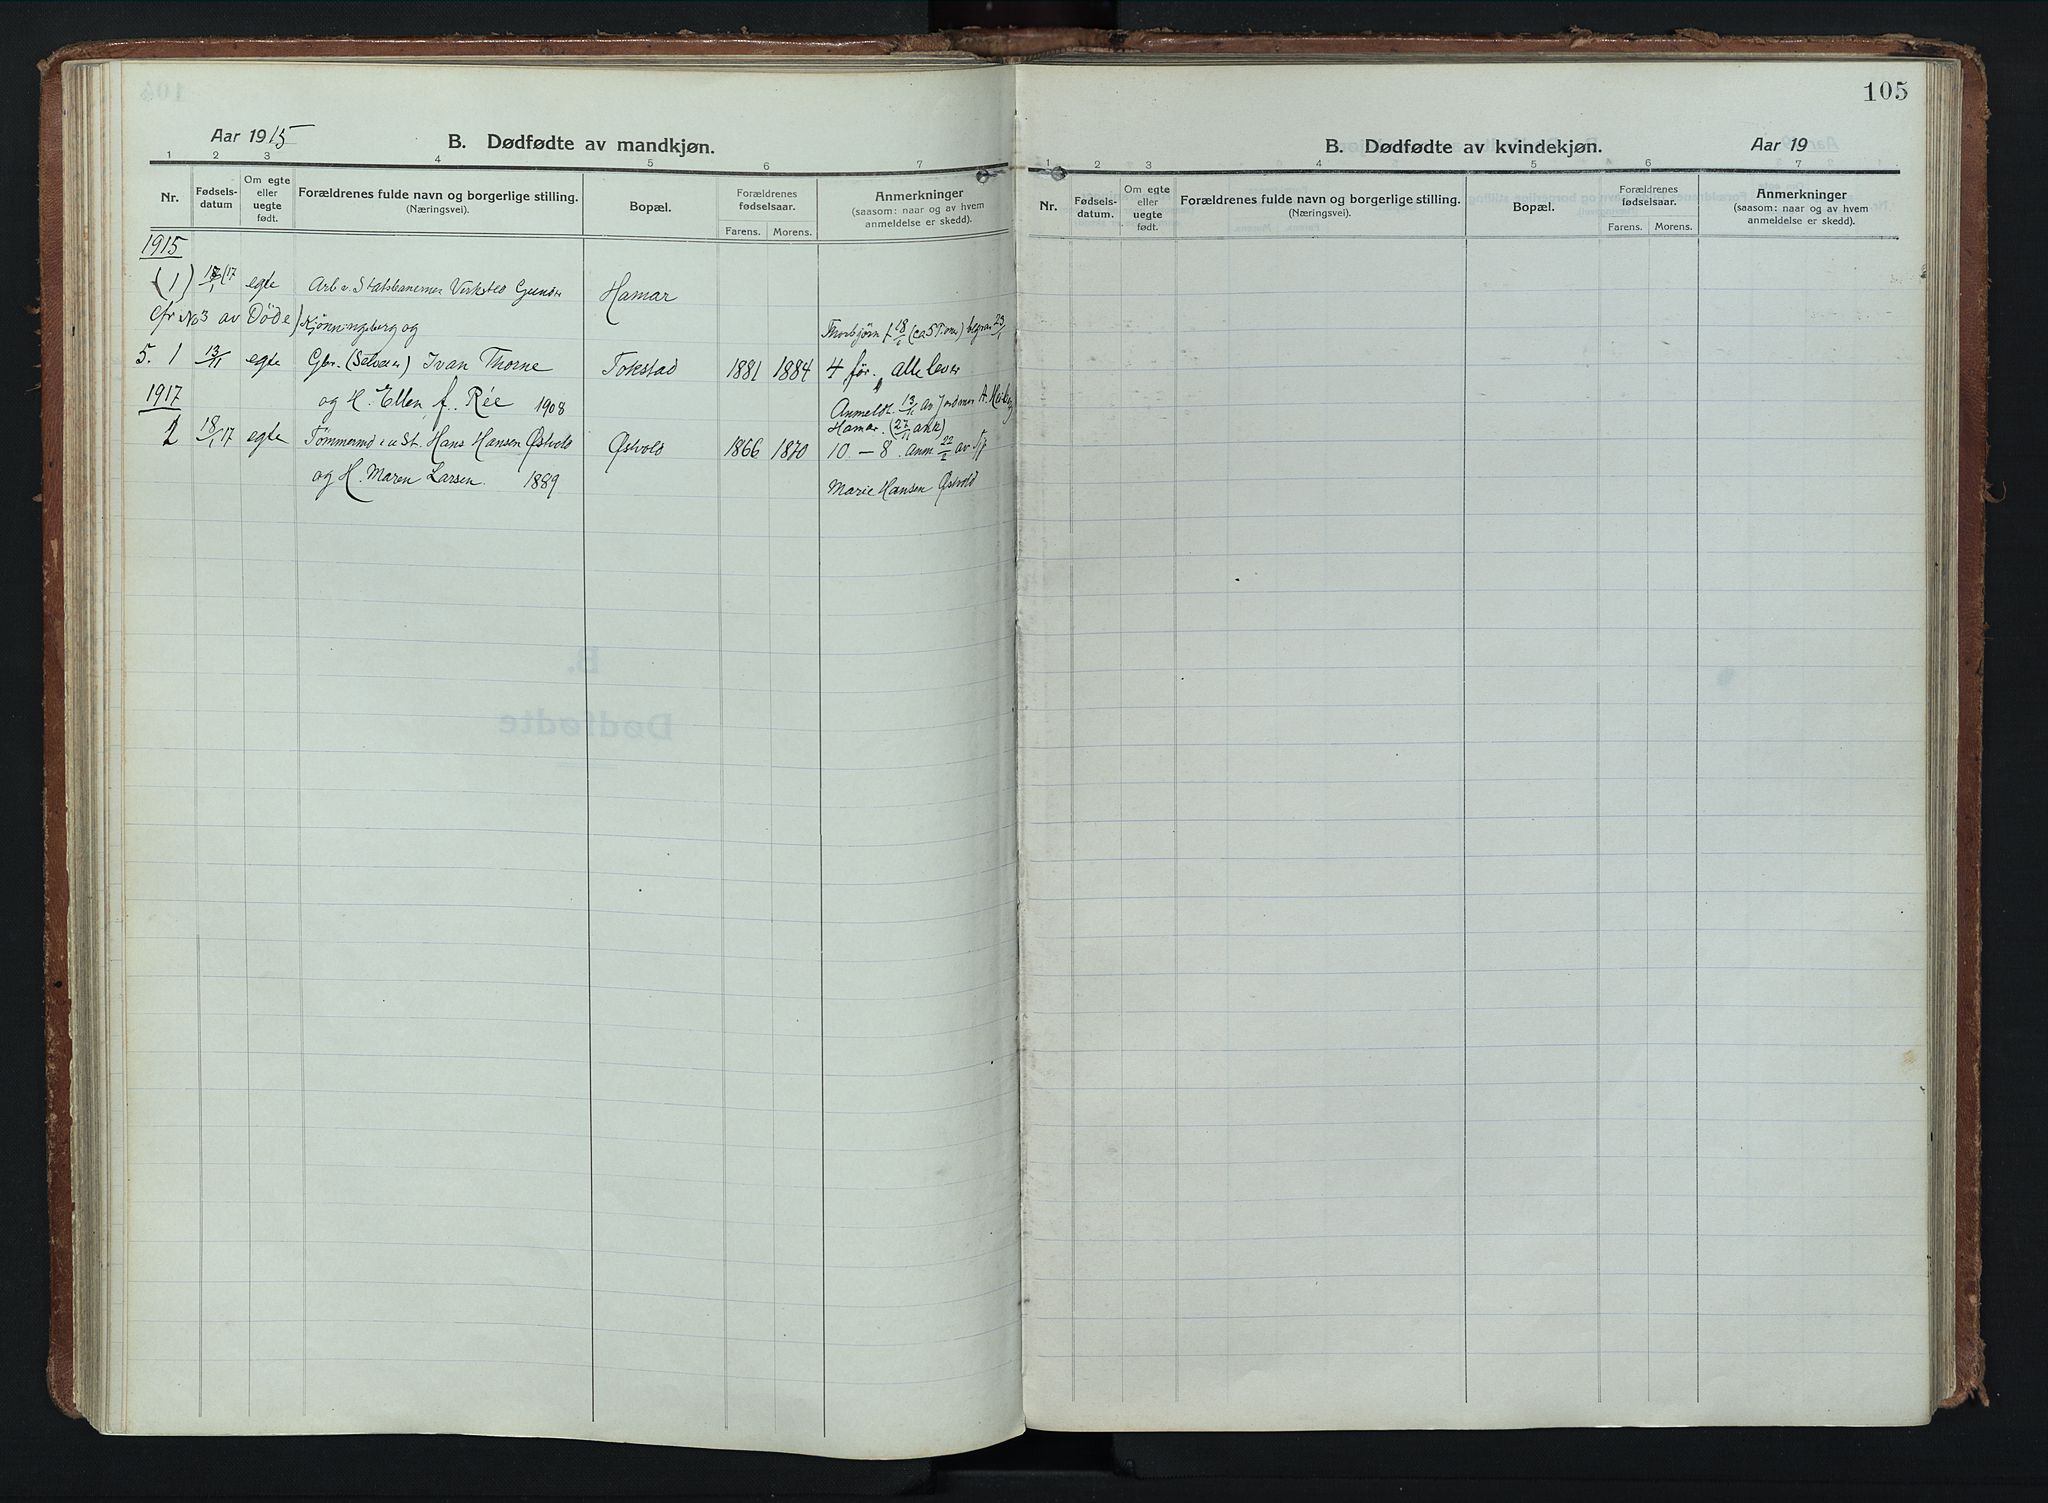 Aar 1915
B. Dødfødte av mandkjøn.
1 2 3 4 5 6 7
Nr.
Fødsels-
datum
Om egte
eller
uegte
født.
Forældrenes fulde navn og borgerlige stilling.
(Næringsvei).
Bopæl.
Forældrenes
fødselsaar.
Farens. Morens.
Anmerkninger
(saasom: naar og av hvem
anmeldelse er skedd).
1915
(1) 17/1 17 egte Arb. v. Statsbanernes Verksted Hamar
cfr No 3 av Döde) Kjønningsberg og Thorbjørn f. 18/1 (ca 5 Timer) begr. 23/1
5. 1 13/11 egte Gbr. (Selveier) Ivan Thorne Tokstad 1881 1884 4 før. alle lever
1917 og H. Ellen, f. Rée 1908 Anmeldt 13/11 av Jordmor A.
Hamar. (27/11
1 18/1 17 egte Tømmermd Hans Hansen Østvold Østvold 1866 1870 10 - 8. Anm 22/2 av
og H. Maren Larsen. 1889 Marie Hansen Østvold
105
B. Dødfødte av kvindekjøn.
Aar 19
1 2 3 4 5 6 7
Nr.
Fødsels-
datum.
Om egte
eller
uegte
født.
Forældrenes fulde navn og borgerlige stilling.
(Næringsvei).
Bopæl.
Forældrenes
fødselsaar.
Farens. Morens.
Anmerkninger
(saasom: naar og av hvem
anmeldelse er skedd).